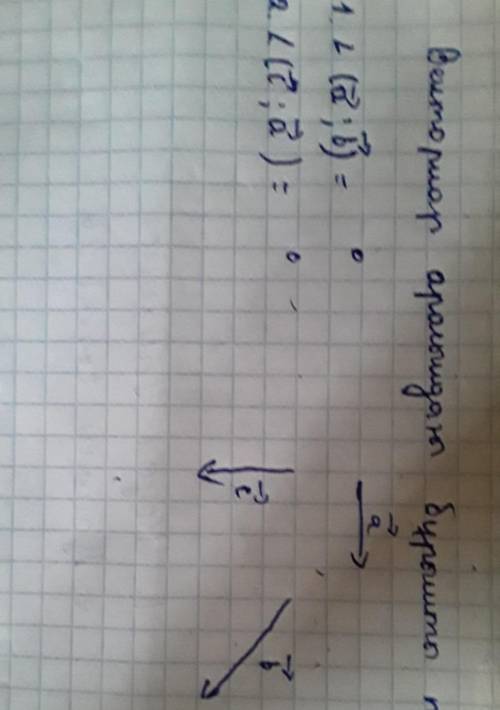 Векторлар арасындағы бұрышты
1. ∠ (a⃗ ; b⃗) = °
2. ∠ (c⃗ ; a⃗) = °
a⃗
c⃗
b⃗